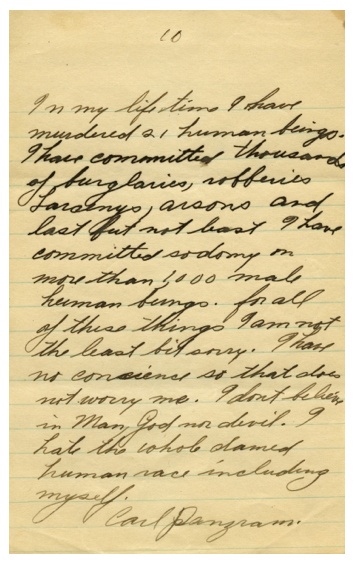 10
In my life time I have
murdered 21 human beings.
I have committed thousands
of burglaries, robberies
Larcenys, arsons and
last but not least I have
committed sodomy on
more than 1,000 male
human beings. for all
of these things I am not
the least bit sorry. I have
no concience so that does
not worry me. I dont believe
in Man, God nor devil. I
hate the whole damed
human race including
myself.
Carl Panzram.